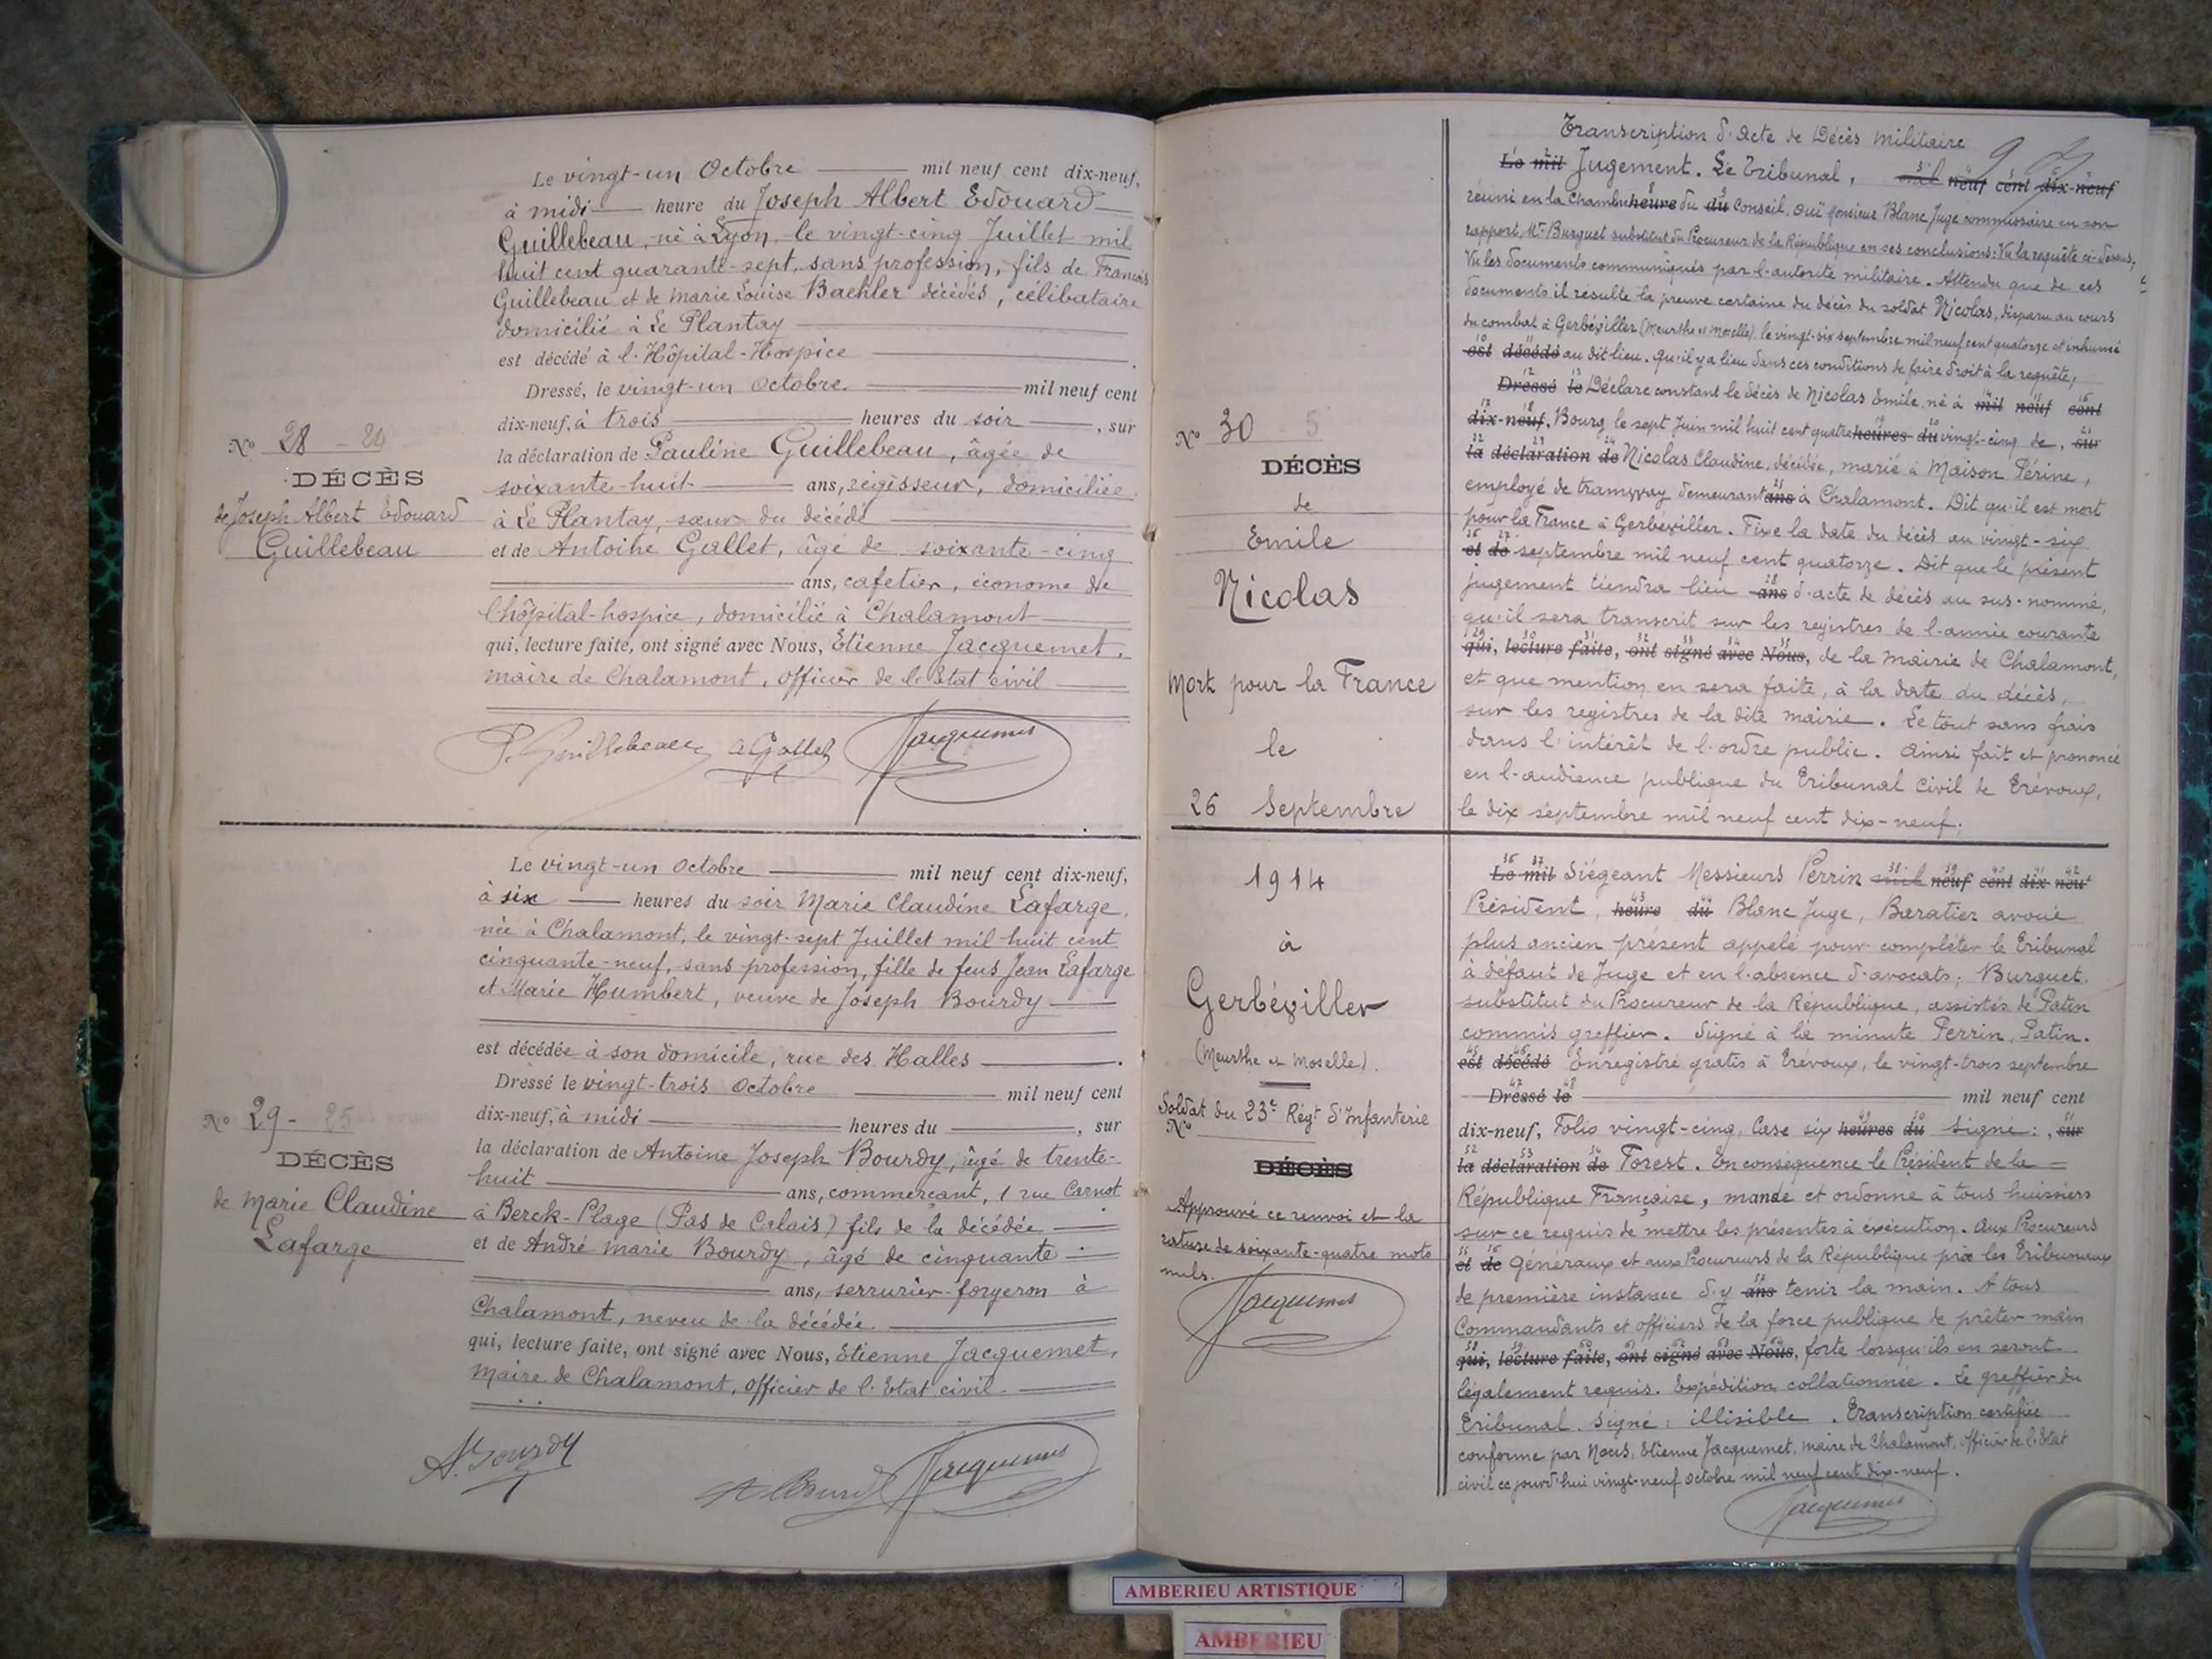 Le vingt-un Octobre mil neuf cent dix-neuf,
à midi heure du Joseph Albert Edouard
Guillebeau, né à Lyon, le vingt-cinq Juillet mil
huit cent quarante-sept, sans profession, fils de François
Guillebeau et de Marie Louise Baehler décédés, célibataire
domicilié à Le Plantay
est décédé à l'Hôpital-Hospice
Dressé, le vingt-un Octobre mil neuf cent
dix-neuf, à trois heures du soir, sur
la déclaration de Pauline Guillebeau, âgée de
soixante-huit ans, régisseur, domiciliée
à Le Plantay, sœur du décédé
et de Antoine Gallet, âgé de soixante-cinq
ans, cafetier, économe de
l'hôpital-hospice, domicilié à Chalamont
qui, lecture faite, ont signé avec Nous, Etienne Jacquemet,
maire de Chalamont, officier de l'Etat civil
P. Guillebeau A Gallet Jacquemet
N° 28 - 24
DÉCÈS
de Joseph Albert Edouard
Guillebeau
Le vingt-un Octobre mil neuf cent dix-neuf,
à six heures du soir Marie Claudine Lafarge,
née à Chalamont, le vingt-sept Juillet mil huit cent
cinquante-neuf, sans profession, fille de feus Jean Lafarge
et Marie Humbert, veuve de Joseph Bourdy
est décédée à son domicile, rue des Halles.
Dressé le vingt-trois Octobre mil neuf cent
dix-neuf, à midi heures du, sur
la déclaration de Antoine Joseph Bourdy, âgé de trente-
huit ans, commerçant, 1 rue Carnot
à Berck-Plage (Pas de Calais) fils de la décédée
et de André Marie Bourdy, âgé de cinquante
ans, serrurier-forgeron à
Chalamont, neveu de la décédée
qui, lecture faite, ont signé avec Nous, Etienne Jacquemet,
maire de Chalamont, officier de l'Etat civil.
A. Bourdy
Jacquemet
N° 29 - 25
DÉCÈS
de Marie Claudine
Lafarge
N° 30 5
DÉCÈS
de
Emile
Nicolas
Mort pour la France
le
26 Septembre
1914
à
Gerbéviller
(Meurthe et Moselle).
Soldat du 23e Régt d'Infanterie
N°
DÉCÈS
Approuvé ce renvoi et la
rature de soixante-quatre mots
nuls.
Jacquemet
Transcription d'Acte de Décès Militaire
Le mil Jugement. Le Tribunal, mil neuf cent dix-neuf
réuni en la Chambre heure du du Conseil, Ouï Monsieur Blanc Juge commissaire en son
rapport, Mr Burguet substitut du Procureur de la République en ses conclusions: Vu la requête ci-dessus,
Vu les documents communiqués par l'autorité militaire. Attendu que de ces
documents il résulte la preuve certaine du décès du soldat Nicolas, disparu au cours
du combat à Gerbéviller (Meurthe et Moselle), le vingt-six septembre mil neuf cent quatorze et inhumé
est décédé au dit lieu. Qu'il y a lieu dans ces conditions de faire droit à la requête,
Dressé le Déclare constant le décès de Nicolas Emile, né à mil neuf cent
dix-neuf, Bourg le sept Juin mil huit cent quatre heures du vingt-cinq de, sur
la déclaration de Nicolas Claudine, décédée, marié à Maison Perine,
employé de tramway demeurant ans à Chalamont. Dit qu'il est mort
pour la France à Gerbéviller. Fixe la date du décès au vingt-six
et de septembre mil neuf cent quatorze. Dit que le présent
jugement tiendra lieu ans d'acte de décès au sus-nommé,
qu'il sera transcrit sur les registres de l'année courante
qui, lecture faite, ont signé avec Nous, de la mairie de Chalamont,
et que mention en sera faite, à la date du décès,
sur les registres de la dite mairie. Le tout sans frais
dans l'intérêt de l'ordre public. Ainsi fait et prononcé
en l'audience publique du Tribunal Civil de Trévoux,
le dix septembre mil neuf cent dix-neuf.
Le mil Siégeant Messieurs Perrin mil neuf cent dix neuf
Président, heure du Blanc Juge, Baratier avoué
plus ancien présent appelé pour compléter le Tribunal
à défaut de Juge et en l'absence d'avocats; Burguet
substitut du Procureur de la République, assistés de Patin
commis greffier. Signé à la minute Perrin, Patin.
est décédé Enregistré gratis à Trévoux, le vingt-trois septembre
Dressé le mil neuf cent
dix-neuf, Folio vingt-cinq, Case six heures du signé:, sur
la déclaration de Forest. En conséquence le Président de la
République Française, mande et ordonne à tous huissiers
sur ce requis de mettre les présentes à exécution. Aux Procureurs
et de Généraux et aux Procureurs de la République près les Tribunaux
de première instance d'y ans tenir la main. A tous
Commandants et officiers de la force publique de prêter main
qui, lecture faite, ont signé avec Nous, forte lorsqu'ils en seront
légalement requis. Expédition collationnée. Le greffier du
Tribunal. Signé: illisible. Transcription certifiée
conforme par Nous, Etienne Jacquemet, maire de Chalamont, officier de l'Etat
civil ce jourd'hui vingt-neuf octobre mil neuf cent dix-neuf.
Jacquemet
AMBERIEU ARTISTIQUE
AMBERIEU